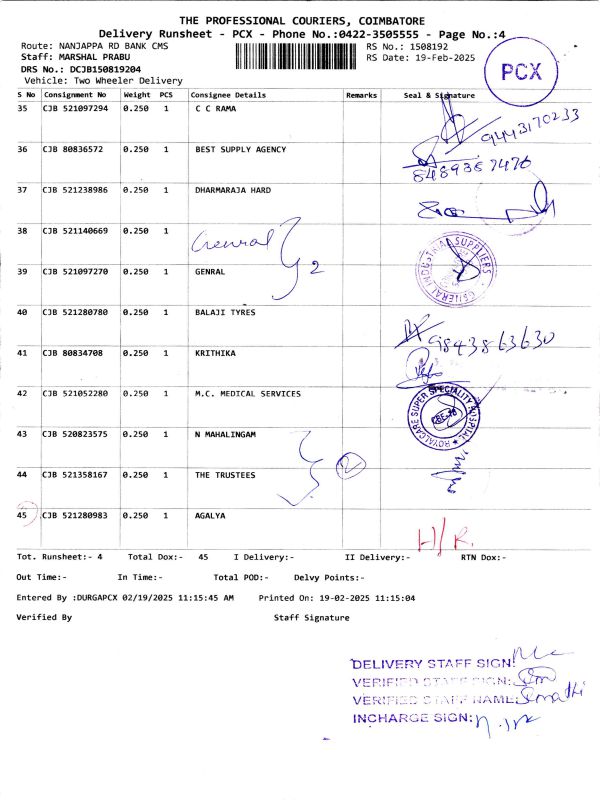 THE PROFESSIONAL COURIERS, COIMBATORE
Delivery Runsheet - PCX - Phone No.:0422-3505555 - Page No.:4
Route: NANJAPPA RD BANK CMS RS No.: 1508192
Staff: MARSHAL PRABU RS Date: 19-Feb-2025
DRS No.: DCJB150819204
Vehicle: Two Wheeler Delivery
PCX
S No Consignment No Weight PCS Consignee Details Remarks Seal & Signature
35 CJB 521097294 0.250 1 C C RAMA
9443170233
36 CJB 80836572 0.250 1 BEST SUPPLY AGENCY
8489367476
37 CJB 521238986 0.250 1 DHARMARAJA HARD
38 CJB 521140669 0.250 1
Genral 2
39 CJB 521097270 0.250 1 GENRAL
GENERAL INDUSTRIAL SUPPLIERS
40 CJB 521280780 0.250 1 BALAJI TYRES
9843863630
41 CJB 80834708 0.250 1 KRITHIKA
42 CJB 521052280 0.250 1 M.C. MEDICAL SERVICES
ROYALCARE SUPER SPECIALITY HOSPITAL
43 CJB 520823575 0.250 1 N MAHALINGAM
2
44 CJB 521358167 0.250 1 THE TRUSTEES
45 CJB 521280983 0.250 1 AGALYA
H/R.
Tot. Runsheet:- 4 Total Dox:- 45 I Delivery:- II Delivery:- RTN Dox:-
Out Time:- In Time:- Total POD:- Delvy Points:-
Entered By :DURGAPCX 02/19/2025 11:15:45 AM Printed On: 19-02-2025 11:15:04
Verified By Staff Signature
DELIVERY STAFF SIGN:
VERIFIED STAFF SIGN:
VERIFIED STAFF NAME:
INCHARGE SIGN: